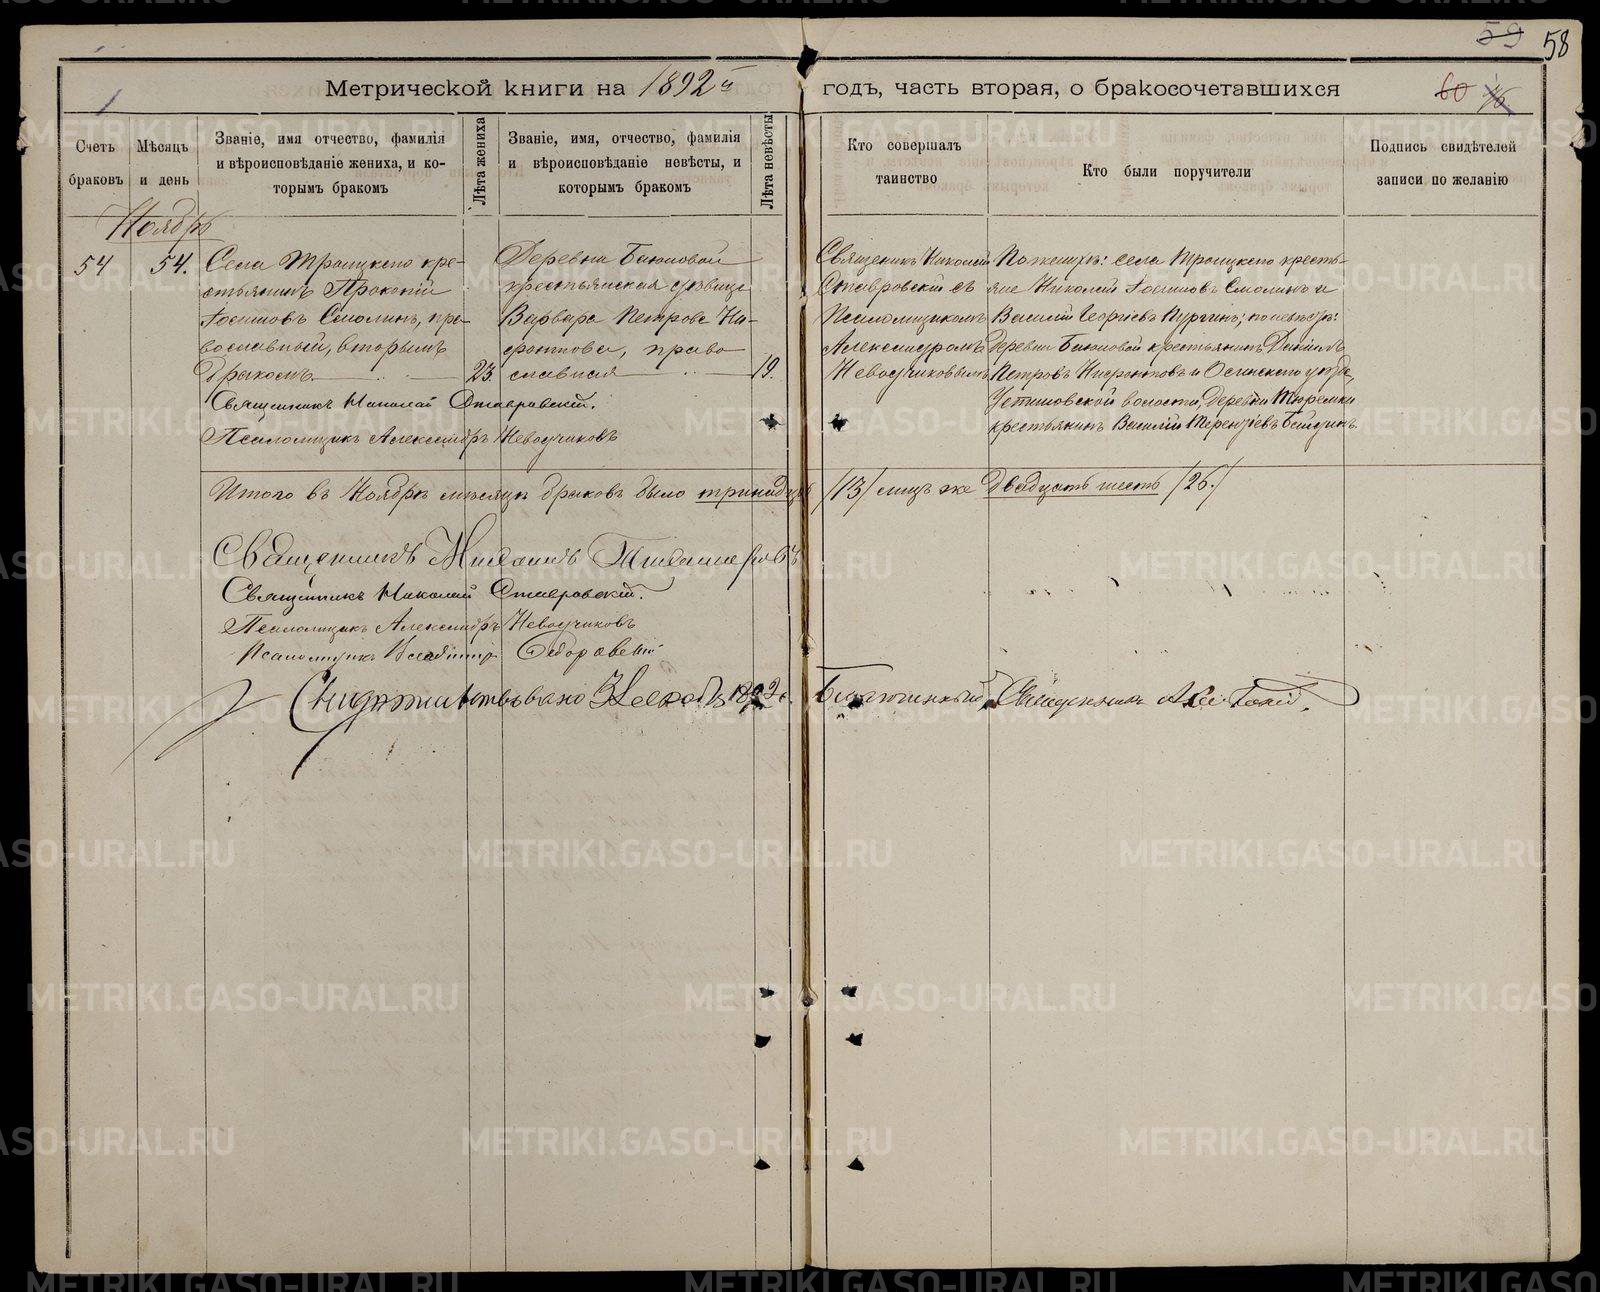 59 58
Метрической книги на 1892й годъ, часть вторая, о бракосочетавшихся
60
Счетъ браковъ
Мѣсяцъ и день
Званіе, имя отчество, фамилія
и вѣроисповѣданіе жениха, и ко-
торымъ бракомъ
Лѣта жениха
Званіе, имя, отчество, фамилія
и вѣроисповѣданіе невѣсты, и
которымъ бракомъ
Лѣта невѣсты
Кто совершалъ
таинство
Кто были поручители
Подпись свидѣтелей
записи по желанію
Ноябрь
54
54.
Села Троицкаго кре-
стьянинъ Прокопій
Іосифовъ Смолинъ, пра-
вославный, вторымъ
бракомъ
23.
Деревни Баюновой
крестьянская дѣвица
Варвара Петрова Ни-
фонтова, право
славная
19.
Священикъ Николай
Ставровскій съ
Псаломщикомъ
Александромъ
Невоучиковымъ
По женихѣ: села Троицкаго кресть-
яне Николай Іосифовъ Смолинъ и
Василій Георгіевъ Пургинъ; по невѣстѣ:
деревни Баюновой крестьянинъ Данiилъ
Петровъ Нифонтовъ и Осинскаго уѣзда,
волости, деревни
крестьянинъ Василій Терентіевъ
Священникъ Николай Ставровскій.
Псаломщикъ Александръ Невоучиковъ
Итого въ Ноябрѣ мѣсяцѣ браковъ было тринадцать /13/ лицъ же двадцать шесть /26./
Священникъ
Священникъ Николай Ставровскій.
Псаломщикъ Александръ Невоучиковъ
Псаломщикъ Владимiр
Свидѣтельствовано 1892 г. Благочинный Священникъ
METRIKI.GASO-URAL.RU